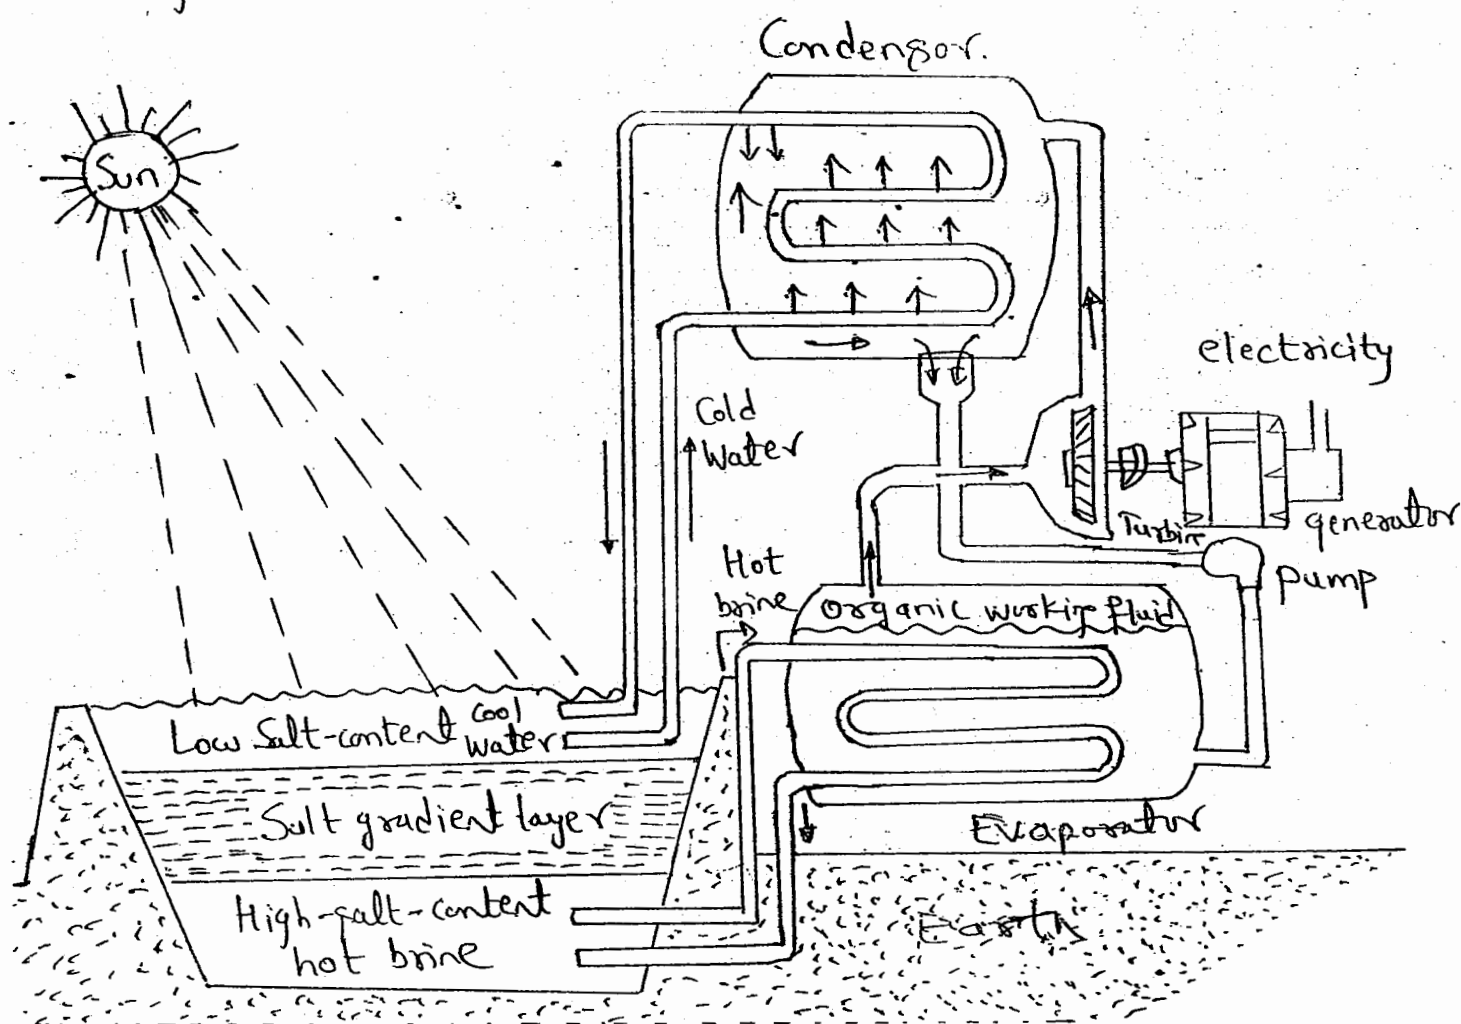 Condensor.
Sun
electricity
Cold
Water
Turbine
generator
Hot
brine
pump
organic working fluid
Low Salt-content
Cool
Water
Salt gradient layer
Evaporator
High-salt-content
hot brine
Earth